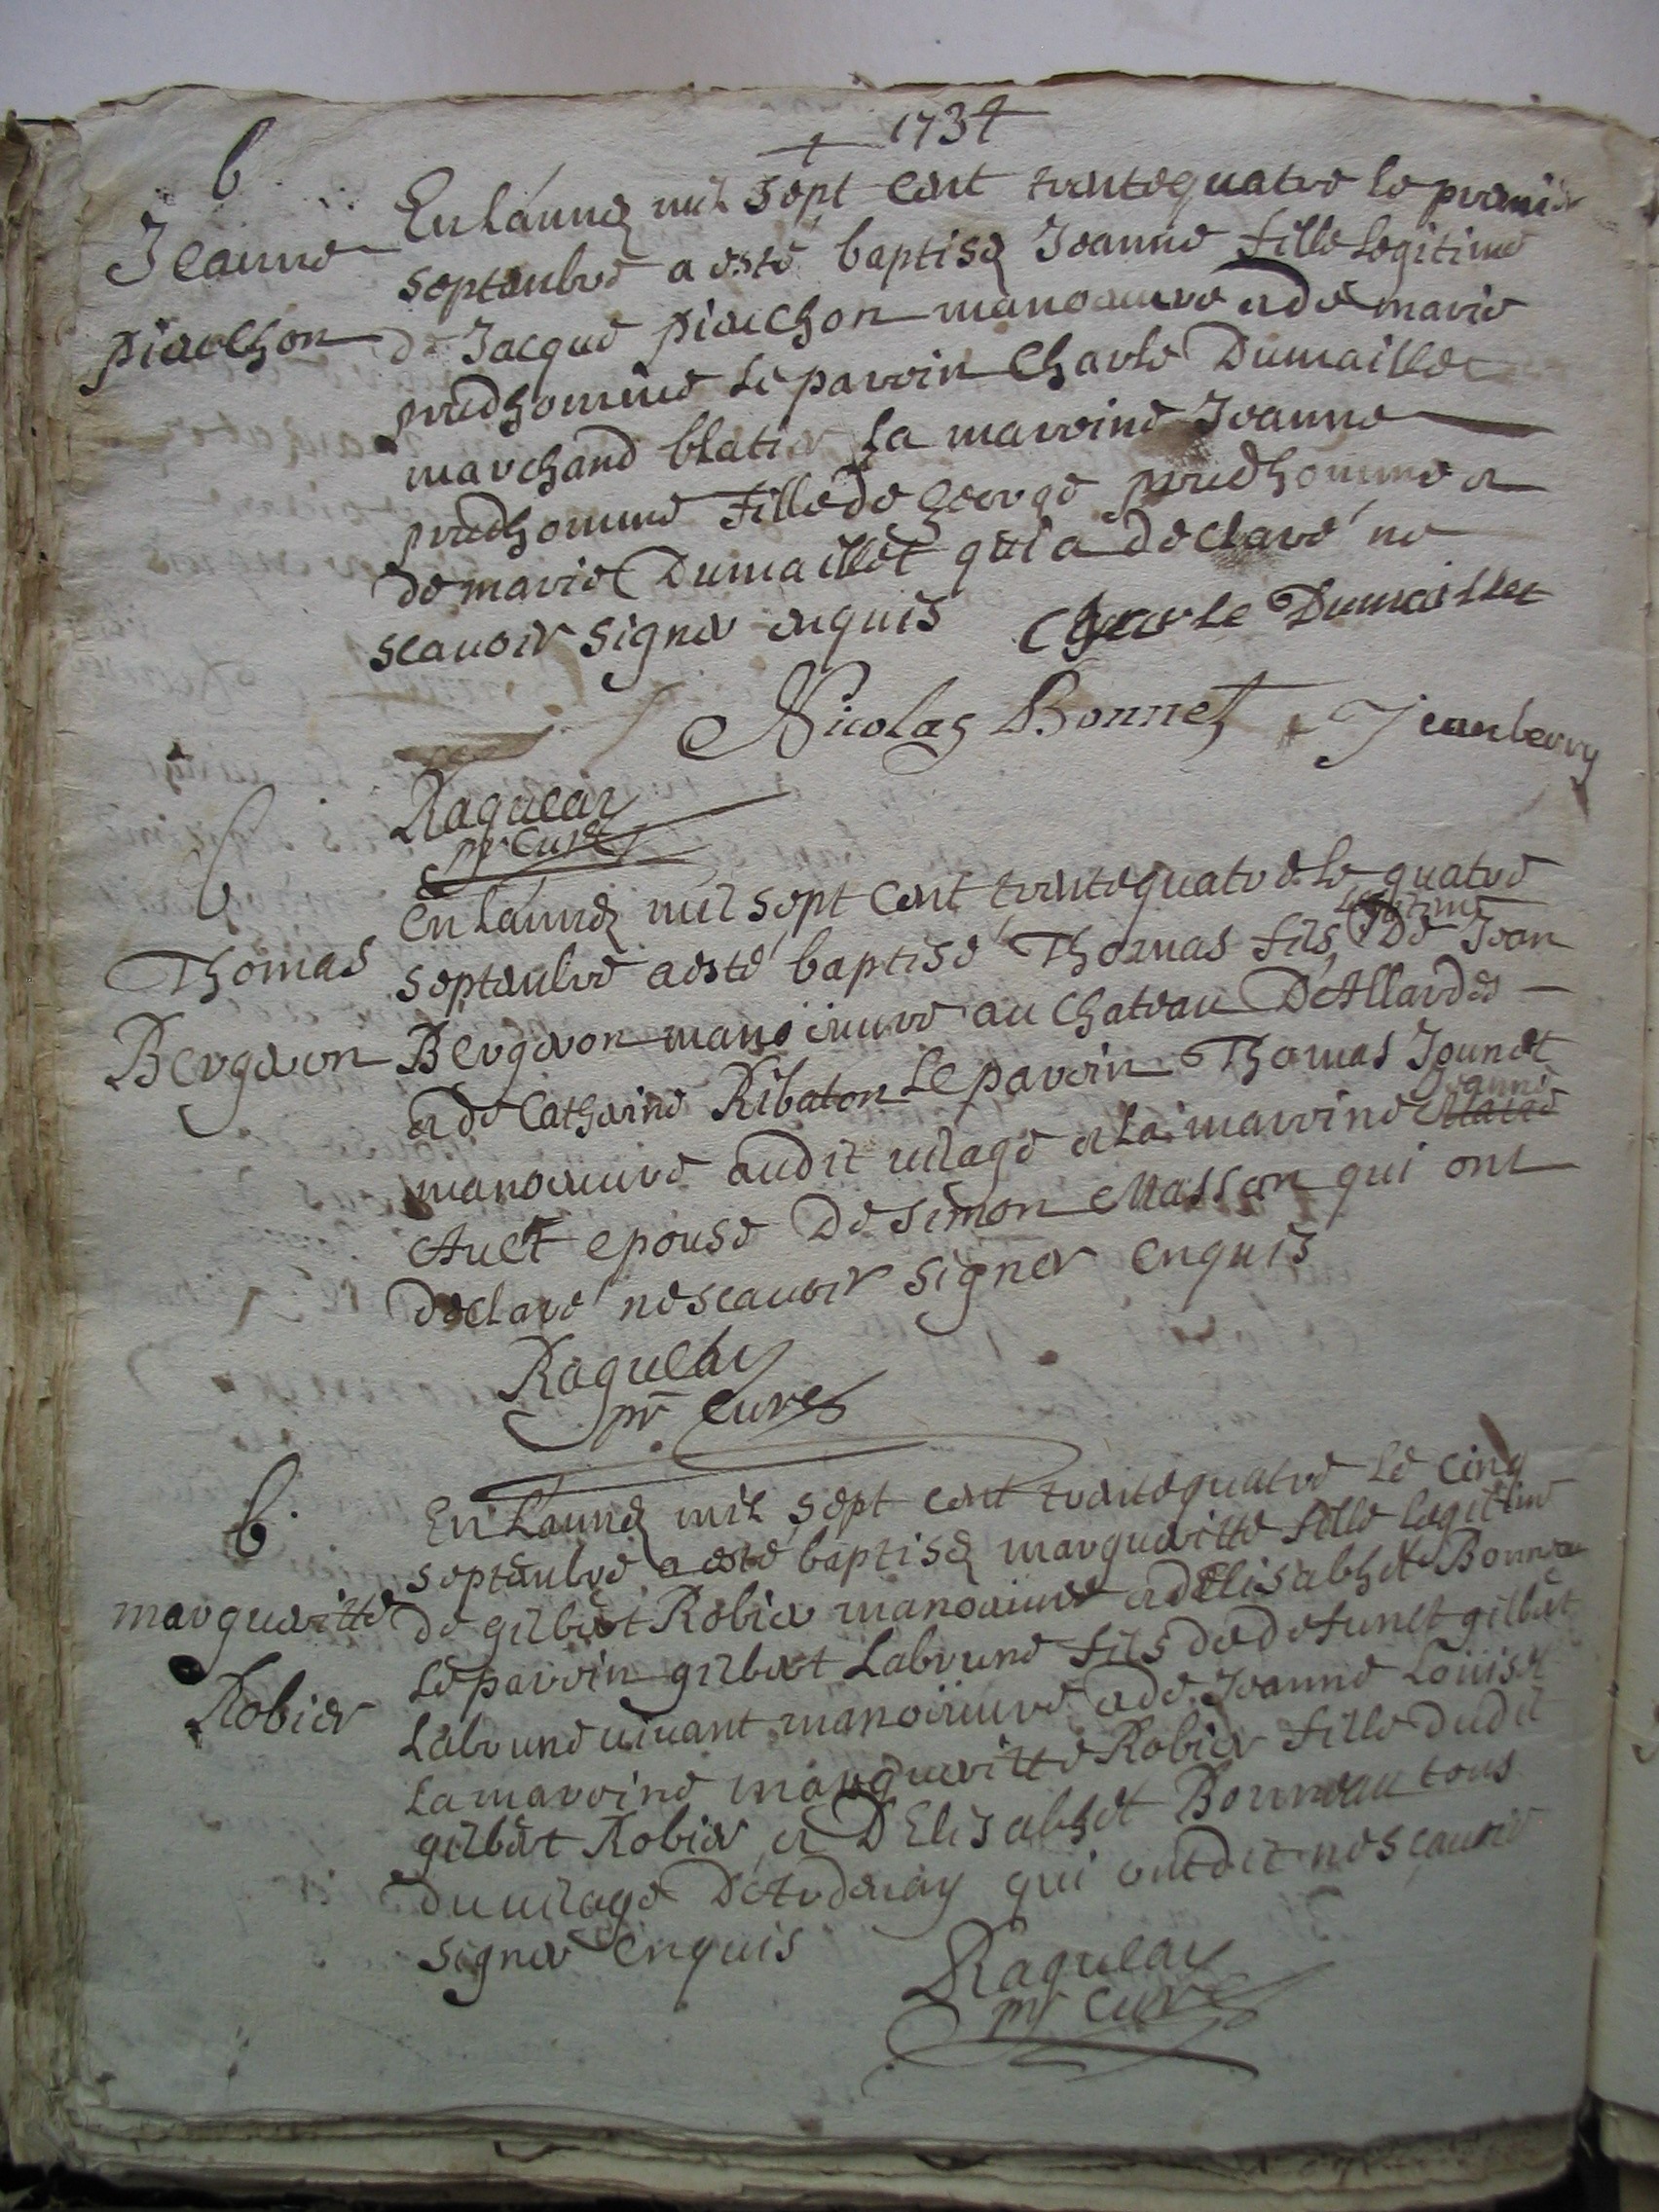 1734
b
Jeanne
pierchon
En Lannée mil sept cent trentequatre le premier
septembre a esté baptisée Jeanne fille Legitime
de Jacque pierchon manoeuvre et de marie
prudhomme Le parrin Charle Dumaillet
marchand blatier La marrine Jeanne
prudhomme fille de george prudhomme et
de marie Dumaillet qui a declaré ne
scauoir signer enquis Charle Dumaillet
Nicolas Bonnet Jean berry
Raqueau
pr Curé
b
Thomas
Bergeron
En Lannée mil sept cent trentequatre Le quatre
septembre a esté baptisé Thomas fils legitime De Jean
Bergeron manoeuure au chateau D'Allardes
et de Catherine Ribaton Le parrin Thomas Jounet
manoeuure audit uilage et La marrine Jeanne
Auet epouse De simon Masson qui ont
declaré ne scauoir signer enquis
pr Curé
b
margueritte
Robier
En Lannée mil sept cent trentequatre Le cinq
septembre a esté baptisée margueritte fille legitime
de gilbert Robier manoeuure et d'Elisabhet Bonneau
Le parrin gilbert Labrune fils de defunct gilbert
Labrune uiuant manoeuure et de Jeanne Louise
La marrine margueritte Robier fille dudit
gilbert Robier et D'Elisabhet Bonneau tous
du uilage D'Ardenay qui ont dit ne scauoir
signer enquis
pr Curé